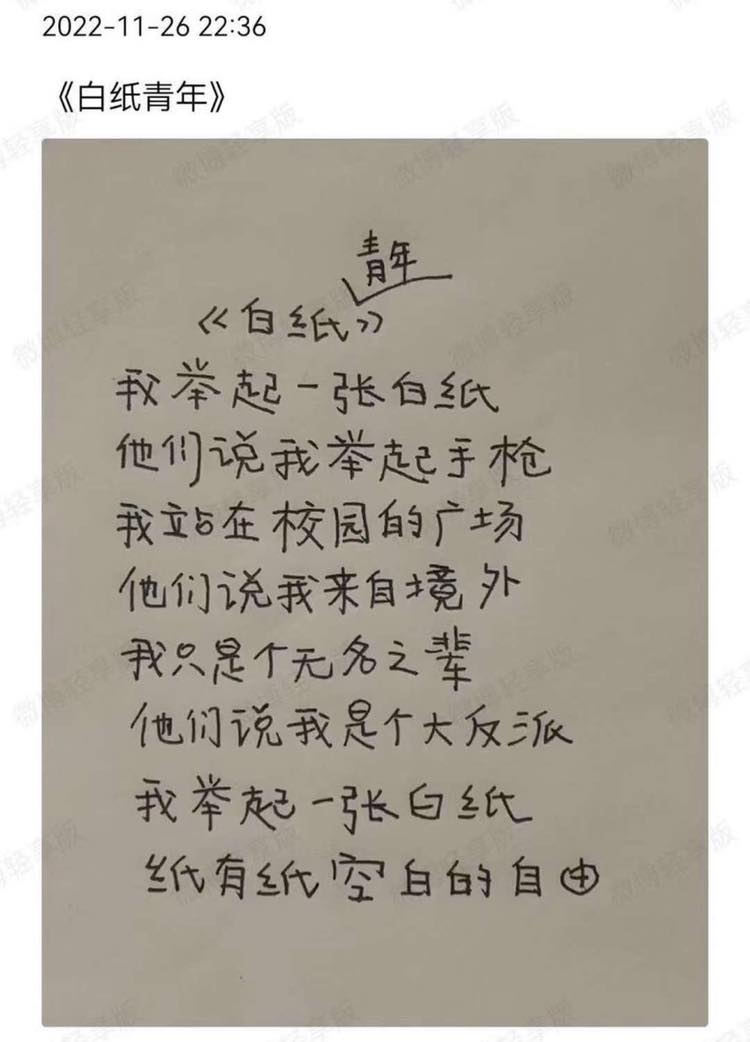 2022-11-26 22:36
《白纸青年》
青年
《白纸》
我举起一张白纸
他们说我举起手枪
我站在校园的广场
他们说我来自境外
我只是个无名之辈
他们说我是个大反派
我举起一张白纸
纸有纸空白的自由
微博轻享版